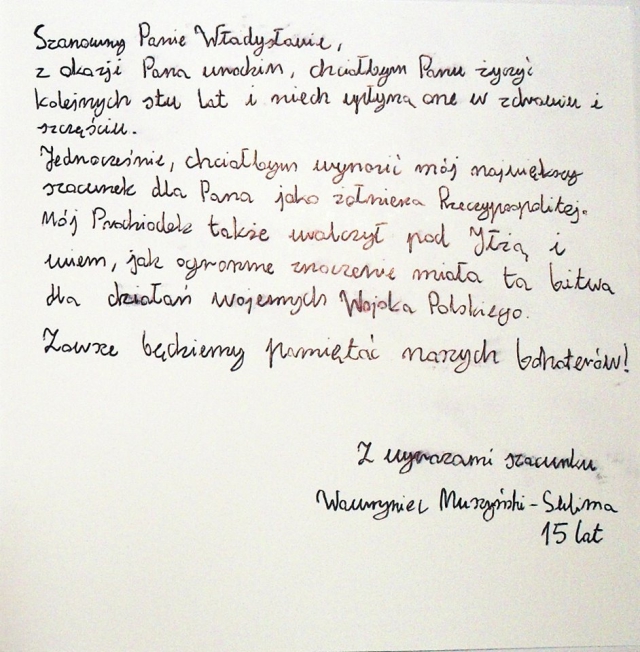 Szanowny Panie Władysławie,
z okazji Pana urodzin, chciałbym Panu życzyć
kolejnych stu lat i niech upłyną one w zdrowiu i
szczęściu.
Jednocześnie, chciałbym wyrazić mój największy
szacunek dla Pana jako żołnierza Rzeczypospolitej.
Mój Pradziadek także walczył pod Iłżą i
wiem, jak ogromne znaczenie miała ta bitwa
dla działań wojennych Wojska Polskiego.
Zawsze będziemy pamiętać naszych bohaterów!
Z wyrazami szacunku
Wawrzyniec Muszyński-
15 lat